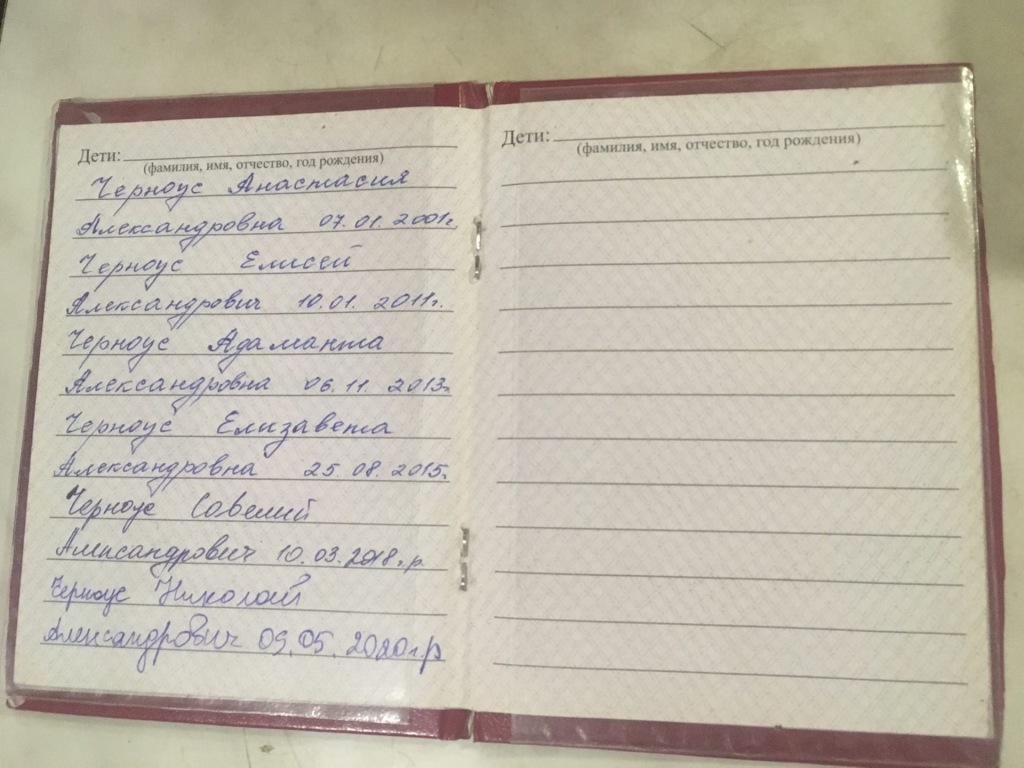 Дети:
(фамилия, имя, отчество, год рождения)
Черноус Анастасия
Александровна 07.01.2001г.
Черноус Елисей
Александрович 10.01.2011г.
Черноус Адаманта
Александровна 06.11.2013г.
Черноус Елизавета
Александровна 25.08.2015г.
Черноус Савелий
Александрович 10.03.2018г.р.
Черноус Николай
Александрович 09.05.2020г.р
Дети:
(фамилия, имя, отчество, год рождения)